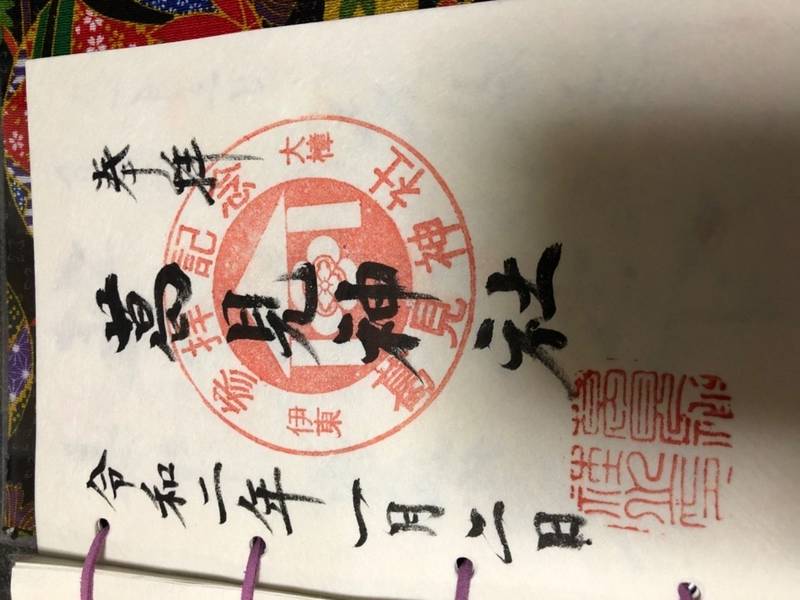 奉拝
葛見神社
令和二年一月二日
参拝記念
大樟
葛見神社
伊東